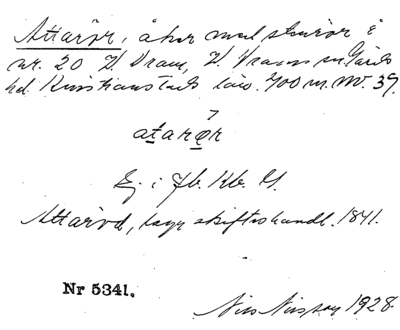 Attarör, åker med stenrör i
nr. 20 V. Vram, V. Vrams sn Gärds
hd. Kristianstads län. 700 m. NV. 39.
atarør
Ej i Jb. Kb. G.
Attaröd, laga skifteshandl. 1841.
Nr 5341.
Nils Nilsson 1928